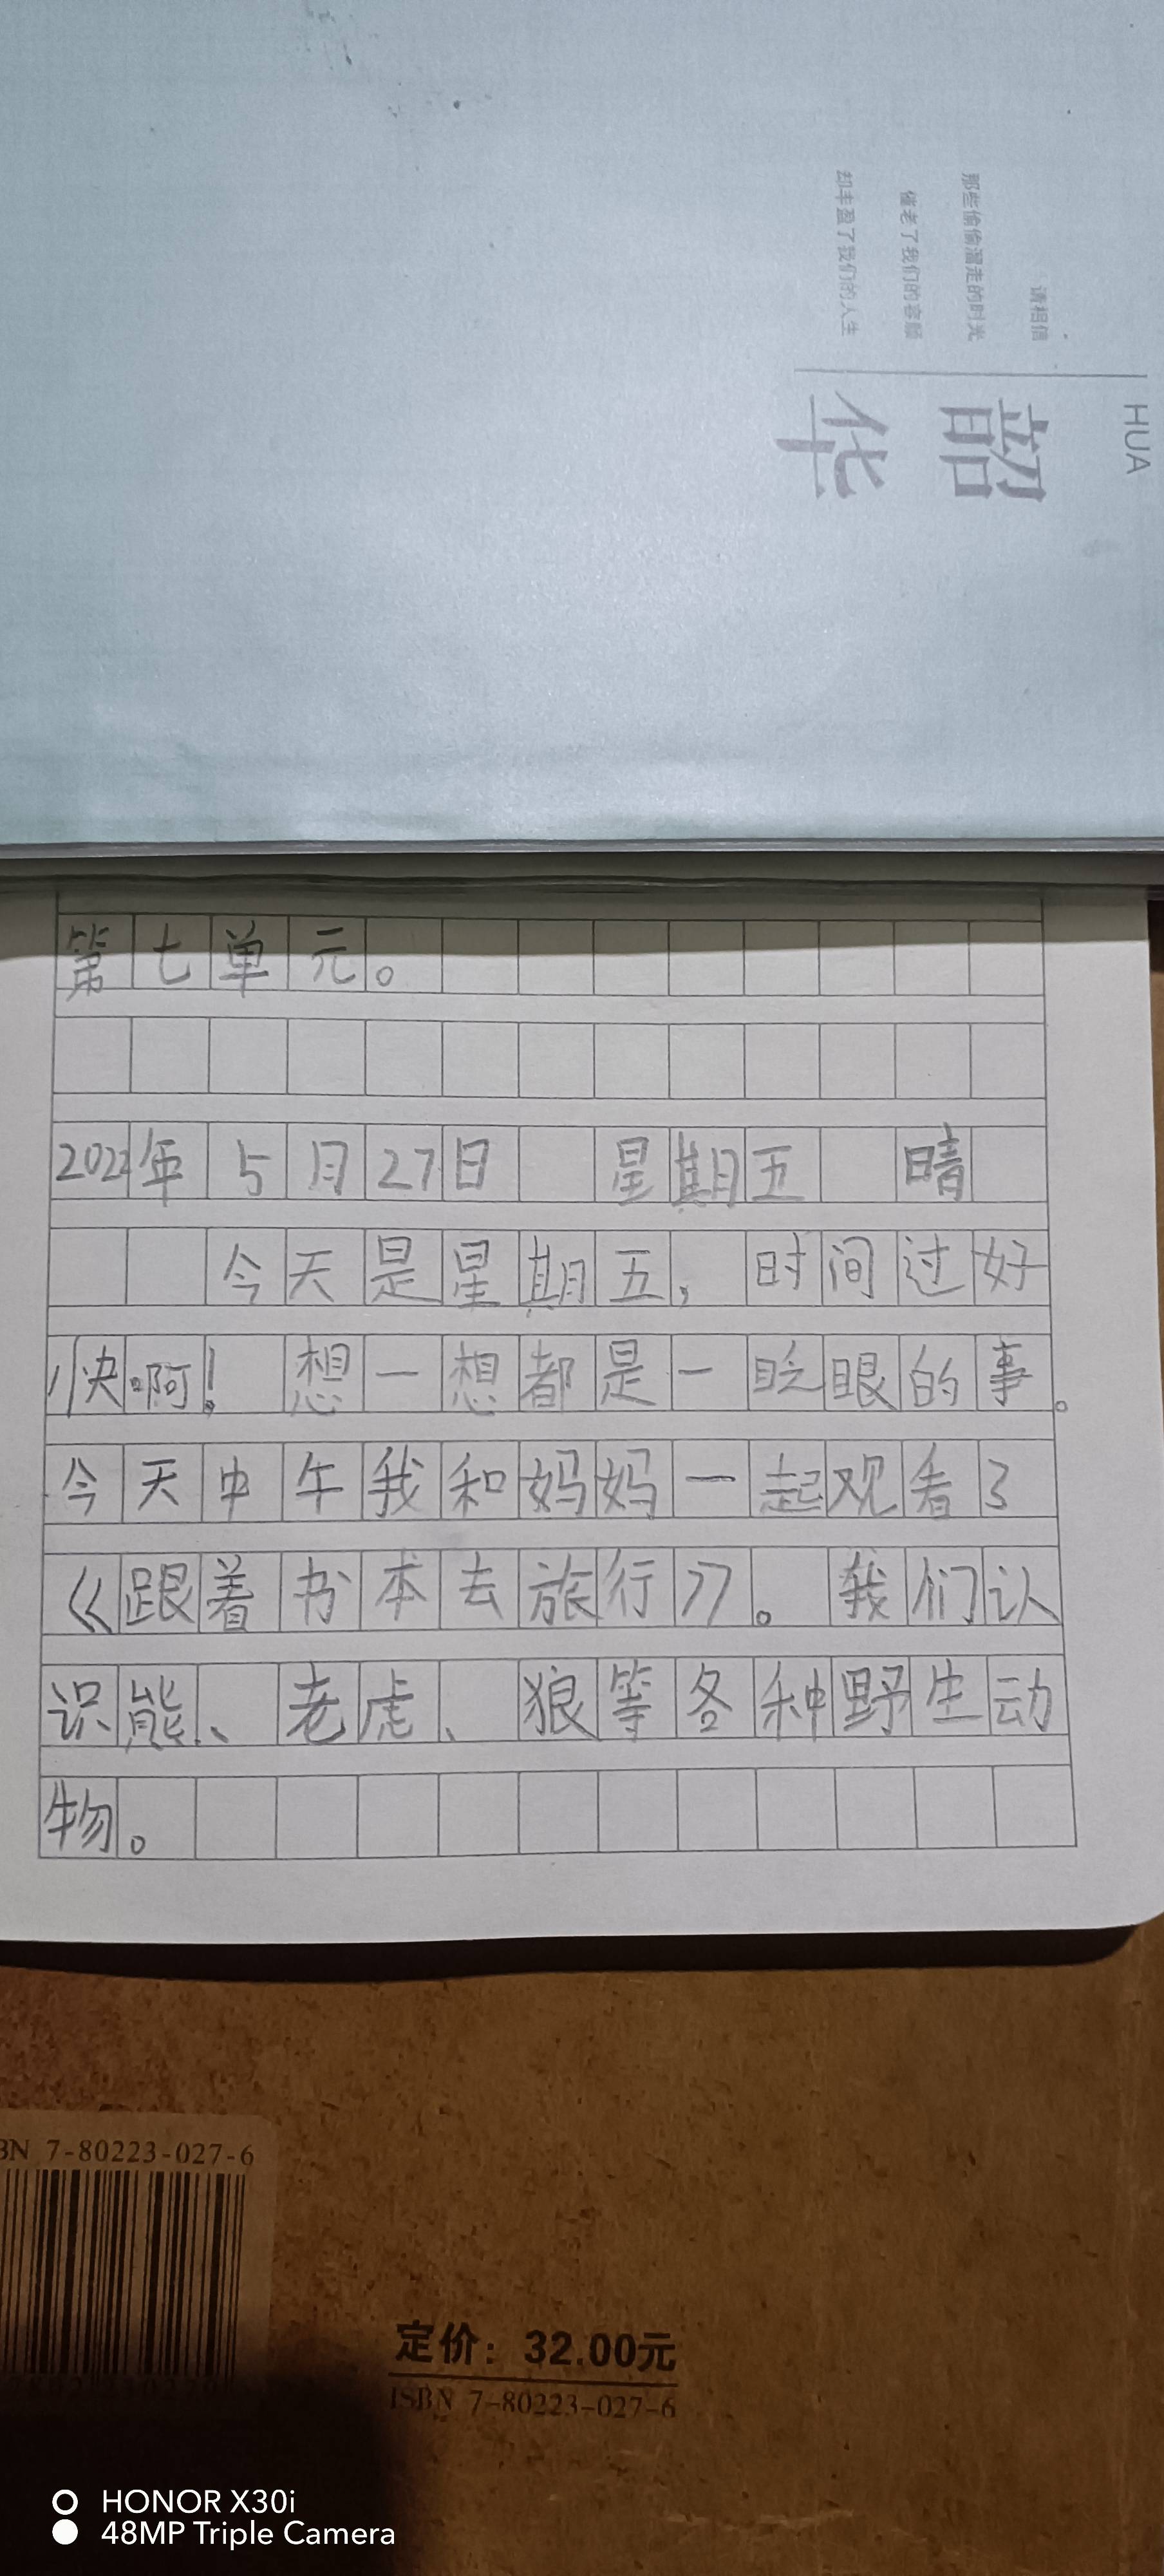 请相信
那些偷偷溜走的时光
催老了我们的容颜
却丰盈了我们的人生
HUA
韶
华
第七单元。
2022年5月27日 星期五 晴
今天是星期五,时间过好
快啊!想一想都是一眨眼的事。
今天中午我和妈妈一起观看了
《跟着书本去旅行》。我们认
识熊、老虎、狼等各种野生动
物。
BN 7-80223-027-6
定价:32.00元
ISBN 7-80223-027-6
HONOR X30i
48MP Triple Camera